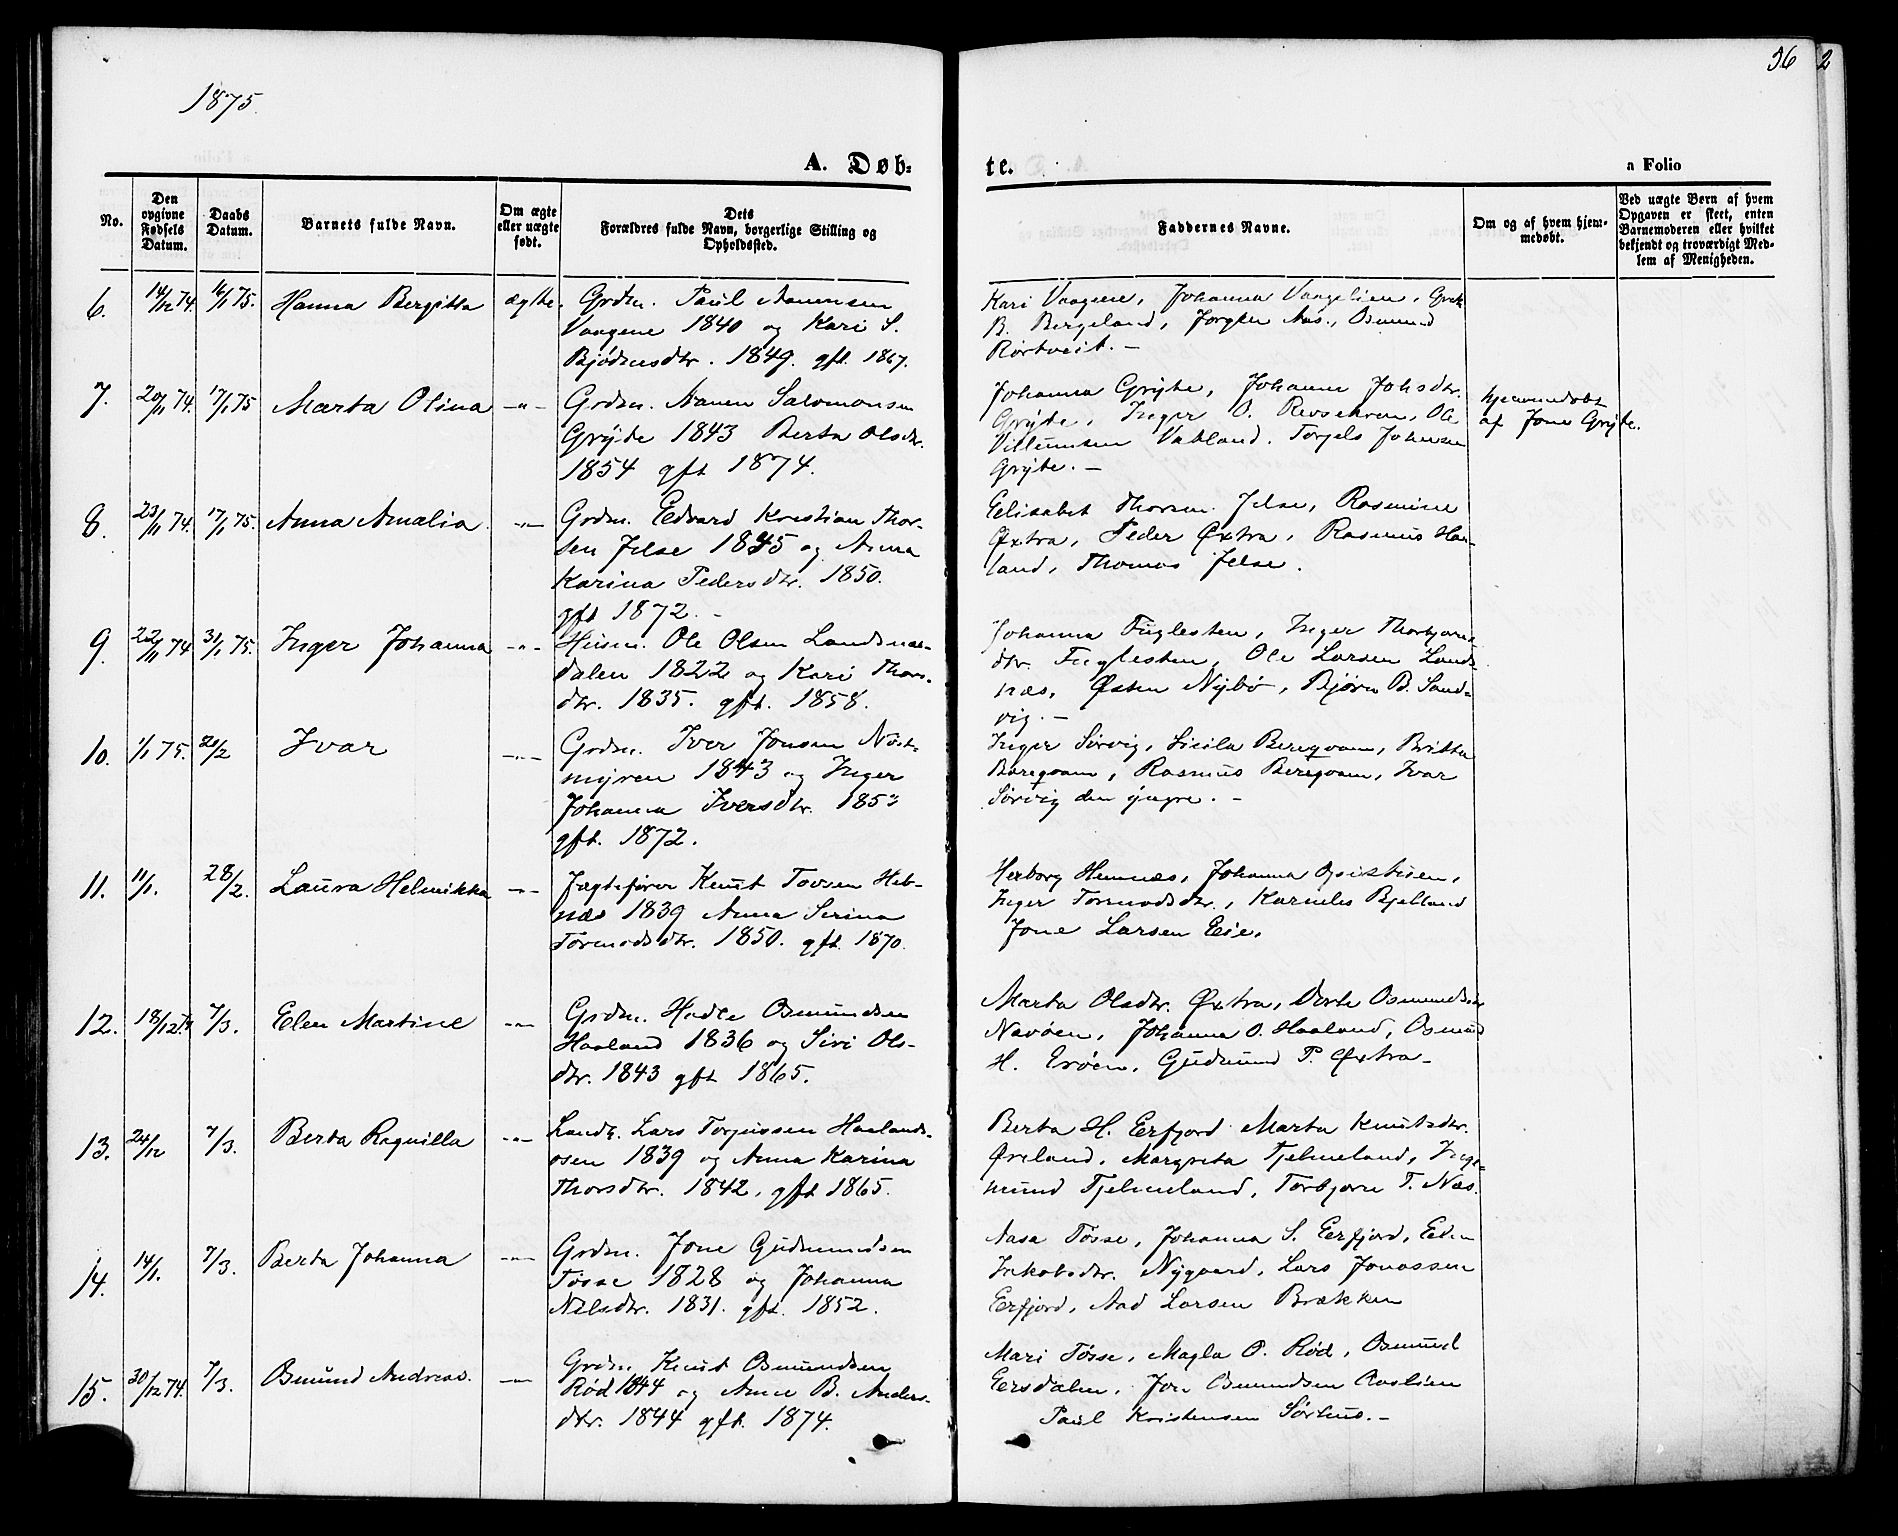 1875.
36 2
A. Døb-
te.
a Folio
No.
Den opgivne Fødsels Datum.
Daabs Datum.
Barnets fulde Navn.
Om ægte eller uægte født.
Dets Forældres fulde Navn, borgerlige Stilling og Opholdssted.
Faddernes Navne.
Om og af hvem hjemmedøbt.
Ved uægte Børn af hvem Opgaven er skeet, enten Barnemoderen eller hvilket bekjendt og troværdigt Medlem af Menigheden.
6. 14/12 74. 16/1 75. Hanna Bergitta ægte.
Grdm. Paul Aanensen
Vaagene 1840 og Kari S.
Bjødnsdtr. 1849. gft. 1867.
Kari Vaagene, Johanna Vaagelien,
B. Bergeland, Aas., Osmund
Rørtveit. —
7. 17/1 75 Marta Olina —"—
Grdm. Aanen Salomonsen
Grÿte 1843 Berta Olsdtr.
1854 gft 1874.
Johanna Grÿte, Johanne Johsdtr.
Grÿte, Inger O. Ole
Villumsen Vatland. Torgels Johnsen
Grÿte. —
hjemmedøbt
af Jone Grÿte.
8. 23/11 74. 17/1 75. Anna Amalia. —"—
Grdm. Edvard Kristian Thor-
sen Jelse 1845 og Anna
Karina Pedersdtr. 1850.
gft 1872. —
Elisabet Thorsen Jelse, Rasmine
Øxtra, Peder Øxtra, Rasmus Haa-
land, Thomas Jelse.
9. 22/11 74 31/1 75. Inger Johanna —"—
Husm. Ole Olsen Landsnæs-
dalen 1822 og Kari Thors-
dtr. 1835. gft. 1858.
Johanna Fuglesten, Inger Thorbjørns-
dtr. Fuglesten, Ole Larsen Lands-
næs, Østen Nÿbø, Bjørn B. Sand-
vig. —
10. 1/1 75. 20/2 Ivar —"—
Grdm. Iver Jonsen Nøst-
mÿren 1843 og Inger
Johanna Iversdtr. 1853
gft. 1872.
Inger Sørvig, Sisila Bereqvam, Britta
Bareqvam, Rasmus Bereqvam, Ivar
Sørvig den ÿngre. —
11. 11/1. 28/2. Laura Helmikka —"—
Jægtefører Knut Tovsen Heb-
næs 1839 Anna Serina
Tormodsdtr. 1850. gft. 1870.
Herborg Hemnæs, Johanna
Inger Tormodsdtr., Kornelis Bjelland
Jone Larsen Eie.
12. 18/12 74 7/3. Elen Martine —"—
Grdm. Hodle Osmundsen
Haaland 1836 og Siri Ols-
dtr. 1843 gft 1865.
Marta Olsdtr. Øxtra, Dorte Osmundsdtr
Nævøen, Johanna O. Haaland, Osmund
H. Erøen, Gudmund P. Øxtra —
13. 24/12 7/3. Berta Ragnilla —"—
Landh. Lars Torjussen Haalands-
osen 1839 og Anna Karina
Thorsdtr. 1842. gft 1865.
Berta H. Eerfjord Marta Knutsdtr.
Øveland, Margreta Tjelmeland, Inge-
mund Tjelmeland, Torbjørn T. Næs.
14. 14/1. 7/3. Berta Johanna —"—
Grdm. Jone Gudmundsen
Tøsse 1828 og Johanna
Nilsdtr. 1831. gft. 1852.
Aasa Tøsse, Johanna S. Eerfjord, Elen
Jakobsdtr. Nÿgaard, Lars Jonassen
Eerfjord, Aad Larsen Brækken
15. 30/12 74. 7/3. Osmund Andreas. —"—
Grdm Knut Osmundsen
Rød 1844 og Anne B. Anders-
dtr. 1844 gft. 1874.
Mari Tøsse, Magla O. Rød, Osmund
Eersdalen, Jon Osmundsen Aaslien
Paul Kristensen Sørhus. —